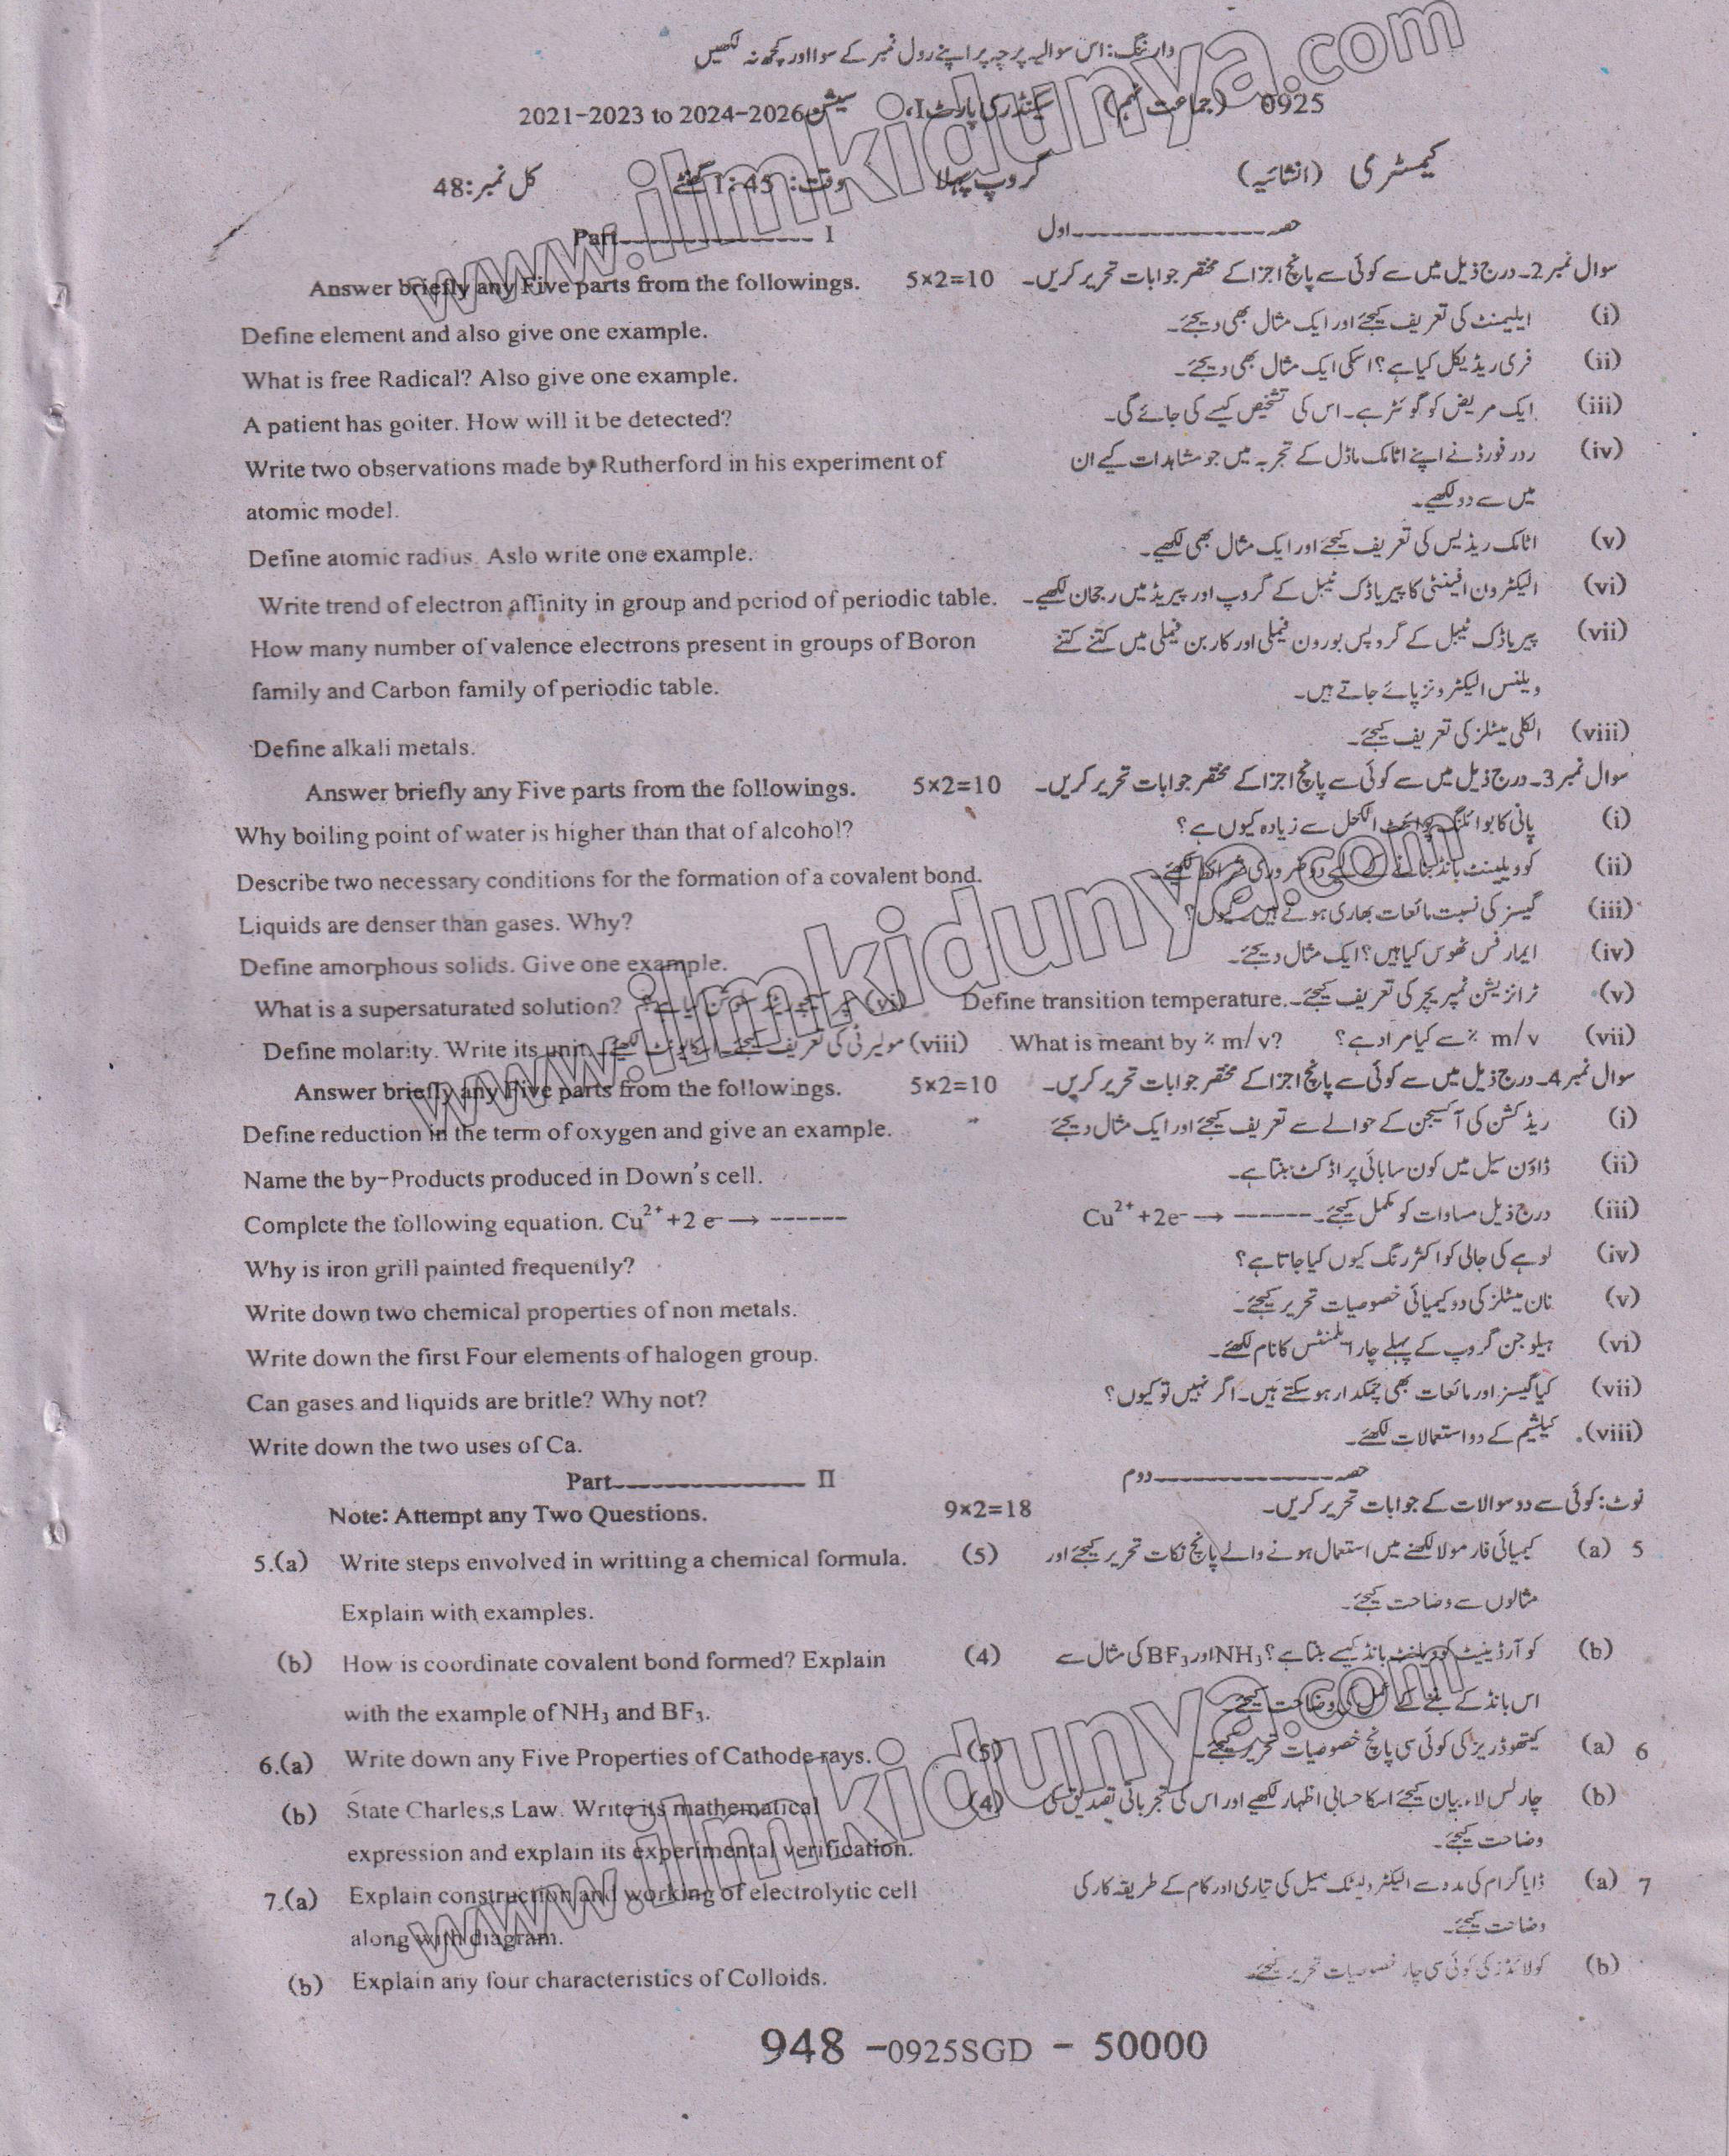 وارننگ: اس سوالیہ پرچہ پر اپنے رول نمبر کے سوا اور کچھ نہ لکھیں
0925 (جماعت نہم) سیکنڈری پارٹ I، سیشن 2021-2023 to 2024-2026
کیمسٹری (انشائیہ) گروپ پہلا وقت: 1:45 گھنٹے کل نمبر: 48
Part---------------- I حصہ----------------اول
Answer briefly any Five parts from the followings. 5×2=10 سوال نمبر 2۔ درج ذیل میں سے کوئی سے پانچ اجزا کے مختصر جوابات تحریر کریں۔
Define element and also give one example. ایلیمنٹ کی تعریف کیجئے اور ایک مثال بھی دیجئے۔ (i)
What is free Radical? Also give one example. فری ریڈیکل کیا ہے؟ اسکی ایک مثال بھی دیجئے۔ (ii)
A patient has goiter. How will it be detected? ایک مریض کو گوئٹر ہے۔ اس کی تشخیص کیسے کی جائے گی۔ (iii)
Write two observations made by Rutherford in his experiment of ردر فورڈ نے اپنے اٹامک ماڈل کے تجربہ میں جو مشاہدات کیے ان (iv)
atomic model. میں سے دو لکھیے۔
Define atomic radius. Aslo write one example. اٹامک ریڈیس کی تعریف کیجئے اور ایک مثال بھی لکھیے۔ (v)
Write trend of electron affinity in group and period of periodic table. الیکٹرون افینٹی کا پیریاڈک ٹیبل کے گروپ اور پیریڈ میں رجحان لکھیے۔ (vi)
How many number of valence electrons present in groups of Boron پیریاڈک ٹیبل کے گروپس بورون فیملی اور کاربن فیملی میں کتنے کتنے (vii)
family and Carbon family of periodic table. ویلنس الیکٹرونز پائے جاتے ہیں۔
Define alkali metals. الکلی میٹلز کی تعریف کیجئے۔ (viii)
Answer briefly any Five parts from the followings. 5×2=10 سوال نمبر 3۔ درج ذیل میں سے کوئی سے پانچ اجزا کے مختصر جوابات تحریر کریں۔
Why boiling point of water is higher than that of alcohol? پانی کا بوائلنگ پوائنٹ الکحل سے زیادہ کیوں ہے؟ (i)
Describe two necessary conditions for the formation of a covalent bond. کوویلینٹ بانڈ بنانے کے لیے دو ضروری شرائط لکھیے۔ (ii)
Liquids are denser than gases. Why? گیسز کی نسبت مائعات بھاری ہوتے ہیں۔ کیوں؟ (iii)
Define amorphous solids. Give one example. ایمارفس ٹھوس کیا ہیں؟ ایک مثال دیجئے۔ (iv)
What is a supersaturated solution? سپر سیچوریٹڈ سلوشن کیا ہے؟ (vi) Define transition temperature. ٹرانزیشن ٹمپریچر کی تعریف کیجئے۔ (v)
Define molarity. Write its unit. مولیرٹی کی تعریف کیجئے۔ اسکا یونٹ لکھیے۔ (viii) What is meant by % m/v? % m/v سے کیا مراد ہے؟ (vii)
Answer briefly any Five parts from the followings. 5×2=10 سوال نمبر 4۔ درج ذیل میں سے کوئی سے پانچ اجزا کے مختصر جوابات تحریر کریں۔
Define reduction in the term of oxygen and give an example. ریڈکشن کی آکسیجن کے حوالے سے تعریف کیجئے اور ایک مثال دیجئے (i)
Name the by-Products produced in Down's cell. ڈاؤن سیل میں کون سا بائی پراڈکٹ بنتا ہے۔ (ii)
Complete the following equation. Cu²⁺ +2 e⁻ → ------ درج ذیل مساوات کو مکمل کیجئے۔ Cu²⁺ +2e⁻ → ------ (iii)
Why is iron grill painted frequently? لوہے کی جالی کو اکثر رنگ کیوں کیا جاتا ہے؟ (iv)
Write down two chemical properties of non metals. نان میٹلز کی دو کیمیائی خصوصیات تحریر کیجئے۔ (v)
Write down the first Four elements of halogen group. ہیلوجن گروپ کے پہلے چار ایلمنٹس کا نام لکھئے۔ (vi)
Can gases and liquids are britle? Why not? کیا گیسز اور مائعات بھی چمکدار ہو سکتے ہیں۔ اگر نہیں تو کیوں؟ (vii)
Write down the two uses of Ca. کیلشیم کے دو استعمالات لکھئے۔ (viii)
Part---------------- II حصہ----------------دوم
Note: Attempt any Two Questions. 9×2=18 نوٹ: کوئی سے دو سوالات کے جوابات تحریر کریں۔
5.(a) Write steps envolved in writting a chemical formula. (5) کیمیائی فارمولا لکھنے میں استعمال ہونے والے پانچ نکات تحریر کیجئے اور (a) 5
Explain with examples. مثالوں سے وضاحت کیجئے۔
(b) How is coordinate covalent bond formed? Explain (4) کو آرڈینیٹ کوویلنٹ بانڈ کیسے بنتا ہے؟ NH₃ اور BF₃ کی مثال سے (b)
with the example of NH₃ and BF₃. اس بانڈ کے بننے کے عمل کی وضاحت کیجئے۔
6.(a) Write down any Five Properties of Cathode rays. (5) کیتھوڈ ریز کی کوئی سی پانچ خصوصیات تحریر کیجئے۔ (a) 6
(b) State Charles,s Law. Write its mathematical (4) چارلس لاء بیان کیجئے اسکا حسابی اظہار لکھیے اور اس کی تجرباتی تصدیق کی (b)
expression and explain its experimental verification. وضاحت کیجئے۔
7.(a) Explain construction and working of electrolytic cell ڈایاگرام کی مدد سے الیکٹرولیٹک سیل کی تیاری اور کام کے طریقہ کار کی (a) 7
along with diagram. وضاحت کیجئے۔
(b) Explain any four characteristics of Colloids. کولائڈز کی کوئی سی چار خصوصیات تحریر کیجئے۔ (b)
948 -0925SGD - 50000
www.ilmkidunya.com
www.ilmkidunya.com
www.ilmkidunya.com